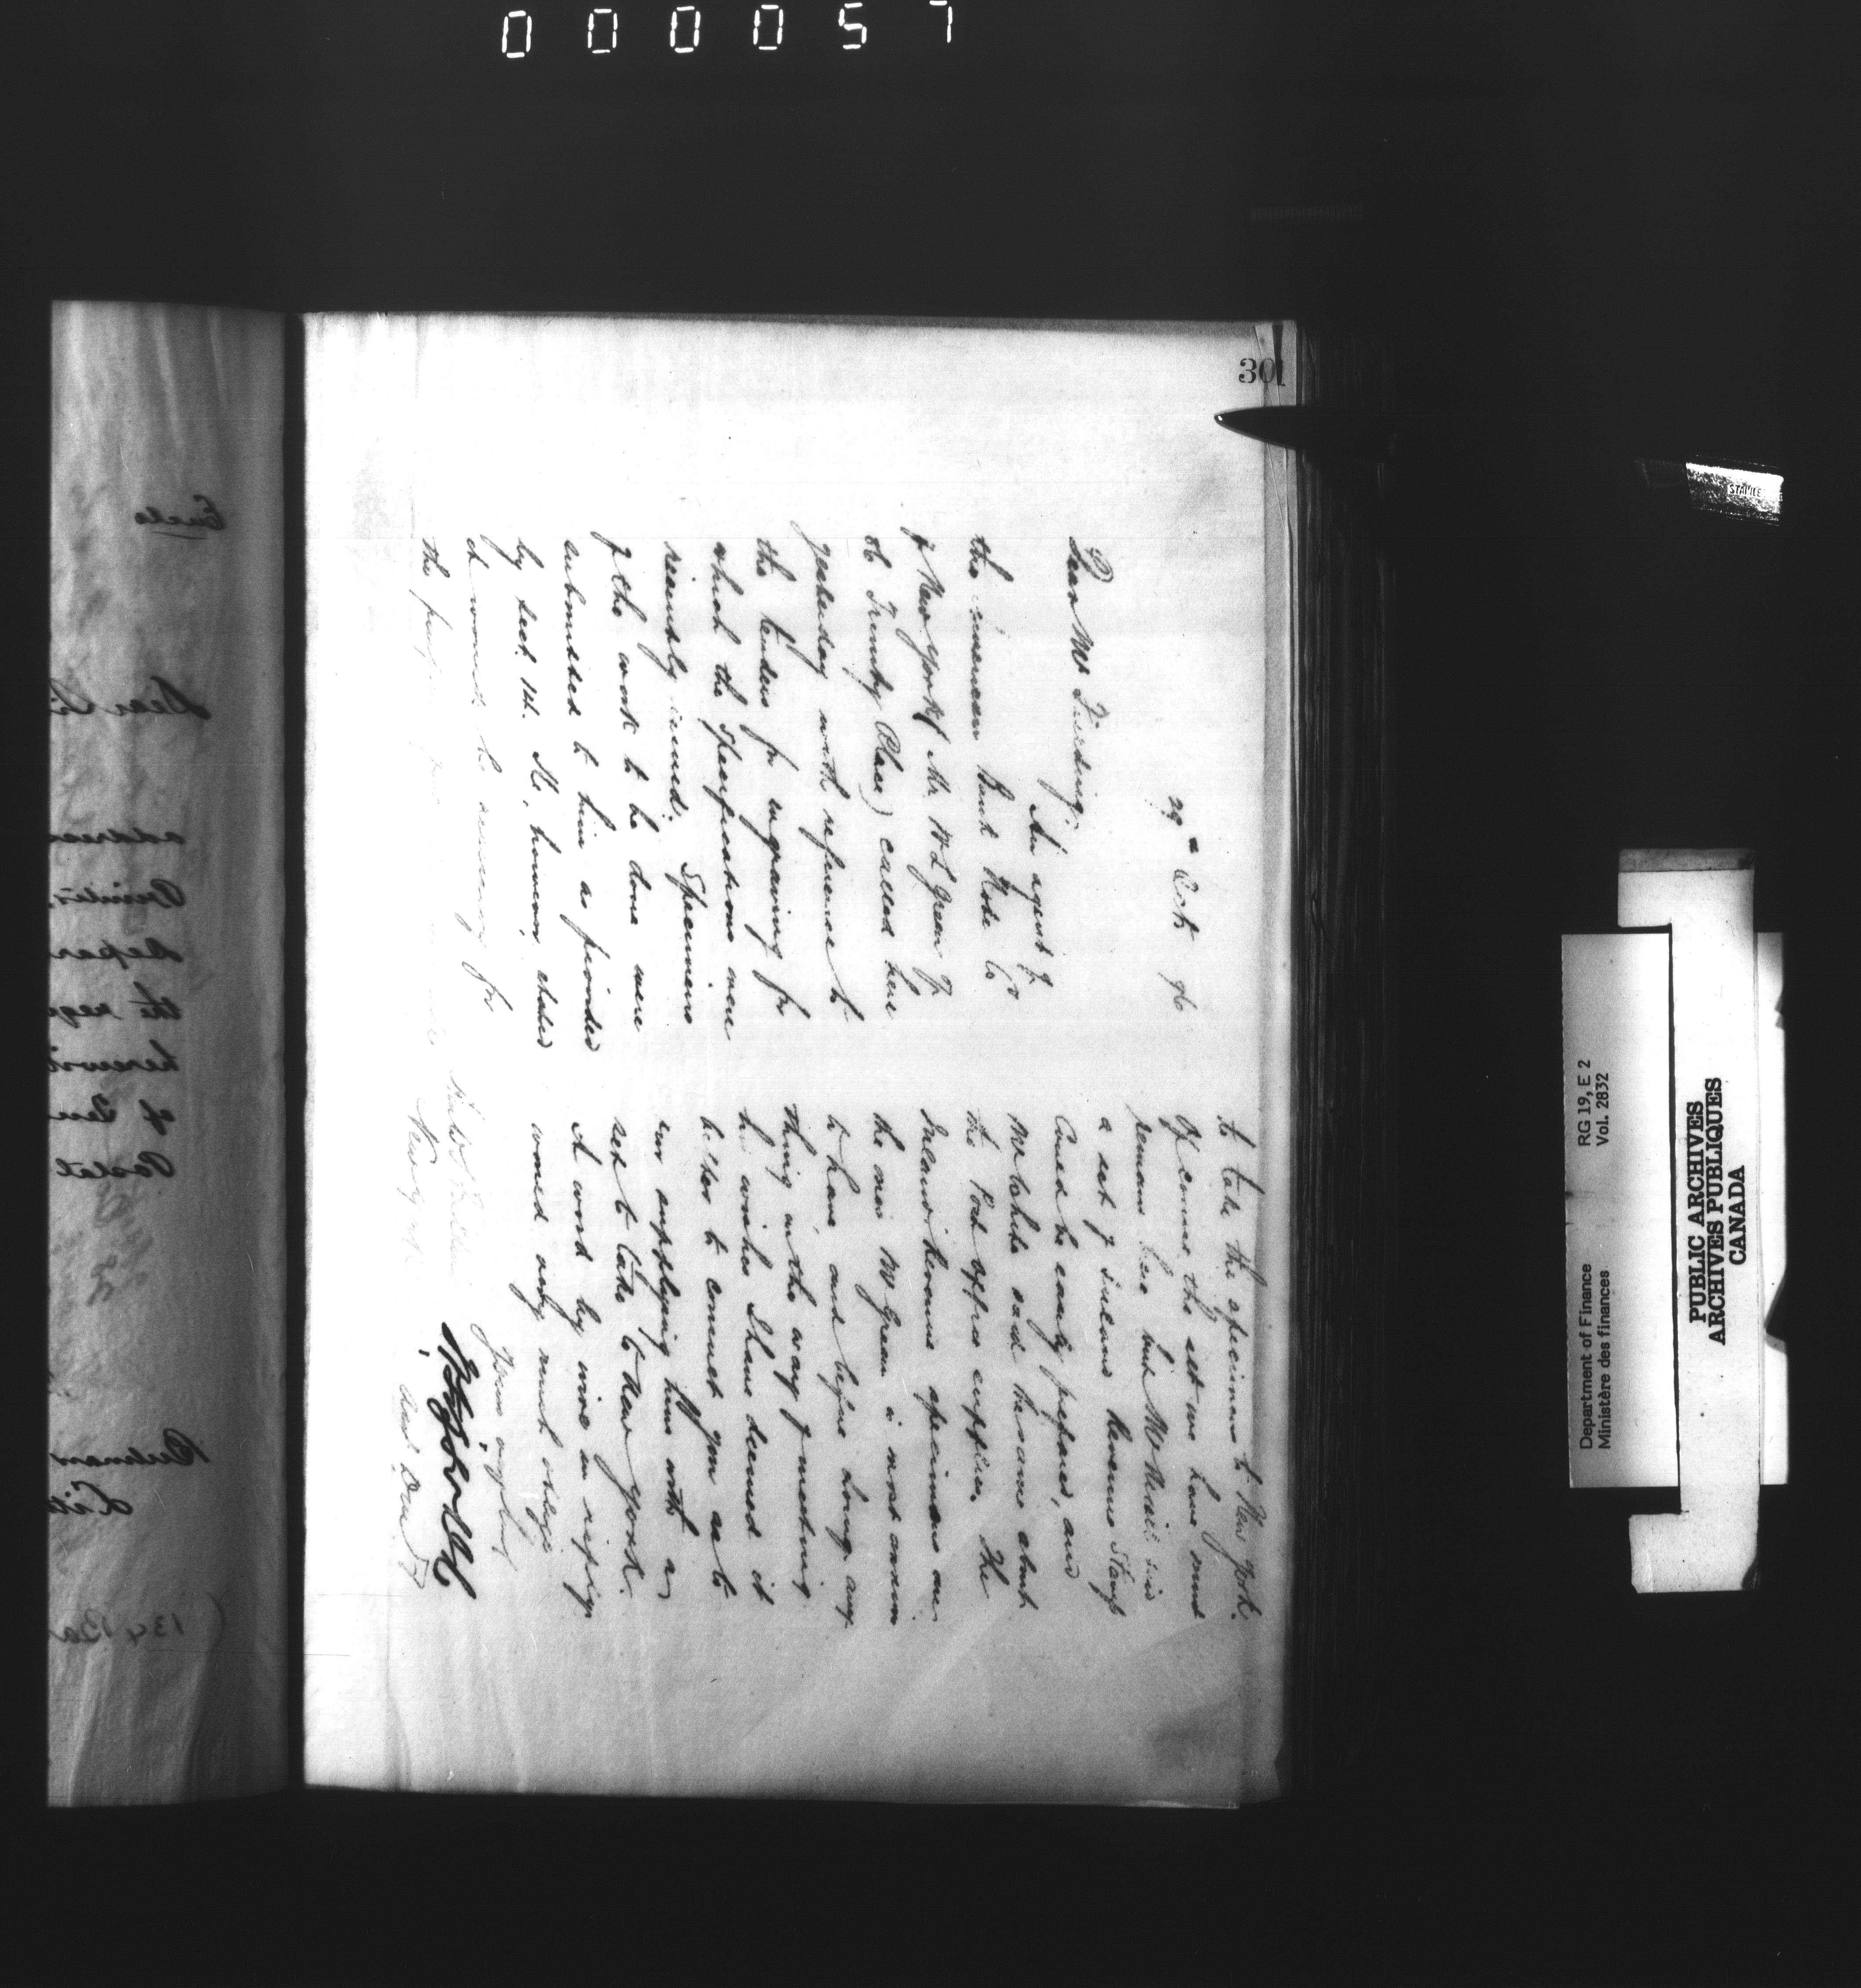 000057
301
29th Oct 96
Dear Mr Fielding:
An agent of
the American Bank Note Co
of New York (Mr W L Green of
86 Trinity Place) called here
yesterday with reference to
the tenders for engraving for
which the specifications were
recently issued. Specimens
of the work to be done were
submitted to him as provided
by Sect. 14. He, however, states
it would be necessary for
the
to take the specimens to New York.
Of course the set we have must
remain here but
a set of Inland Revenue Stamps
could be easily prepared, and
said the same about
the Post Office supplies. The
Inland Revenue specimens are
the ones Mr Green is most anxious
to have and before doing any
thing in the way of meeting
his wishes I have deemed it
better to consult you as to
our supplying him with a
set to take to New York.
A word by wire in reply
would very much oblige
Yours
New York
Encls
Dear
addres
Printin
Depar
the reque
herewit
of
Postal
(134 Ba
STAPLE
RG 19, E 2
Vol. 2832
Department of Finance
Ministère des finances
PUBLIC ARCHIVES
ARCHIVES PUBLIQUES
CANADA